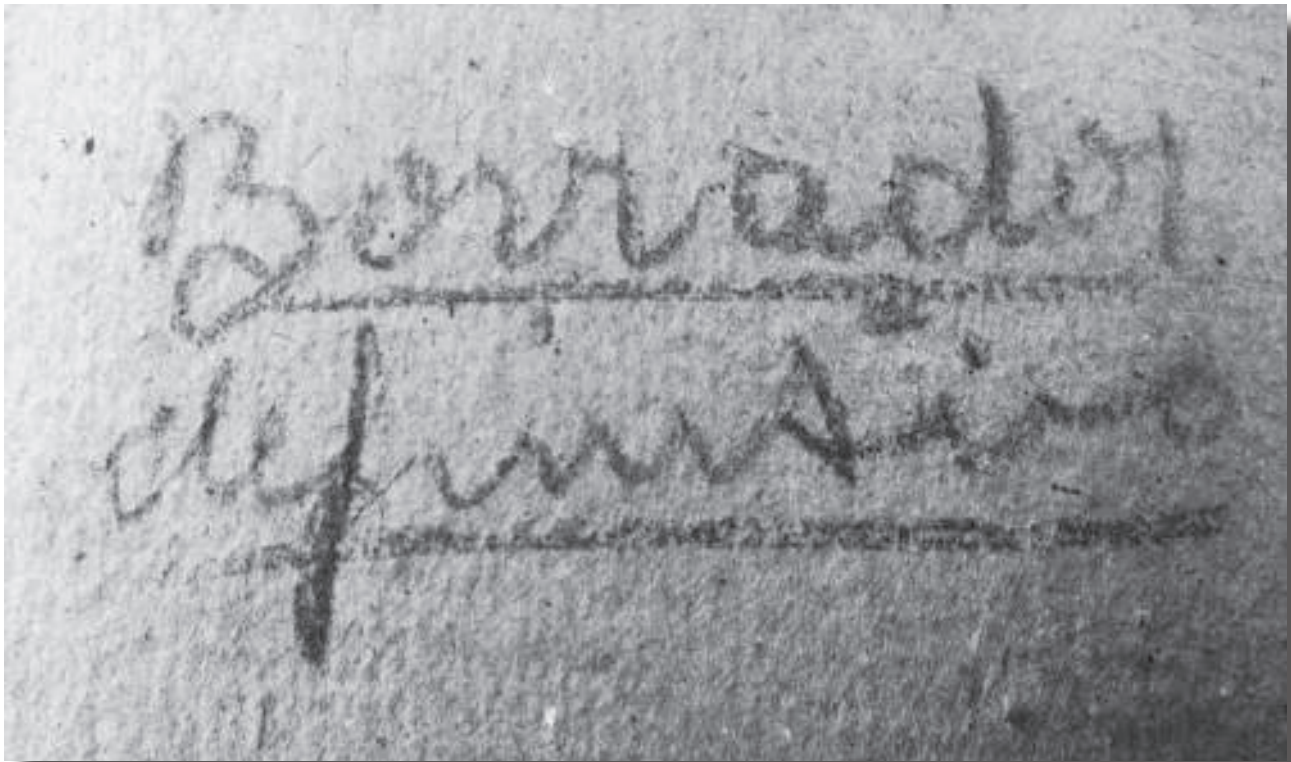 Borrador
definitivo